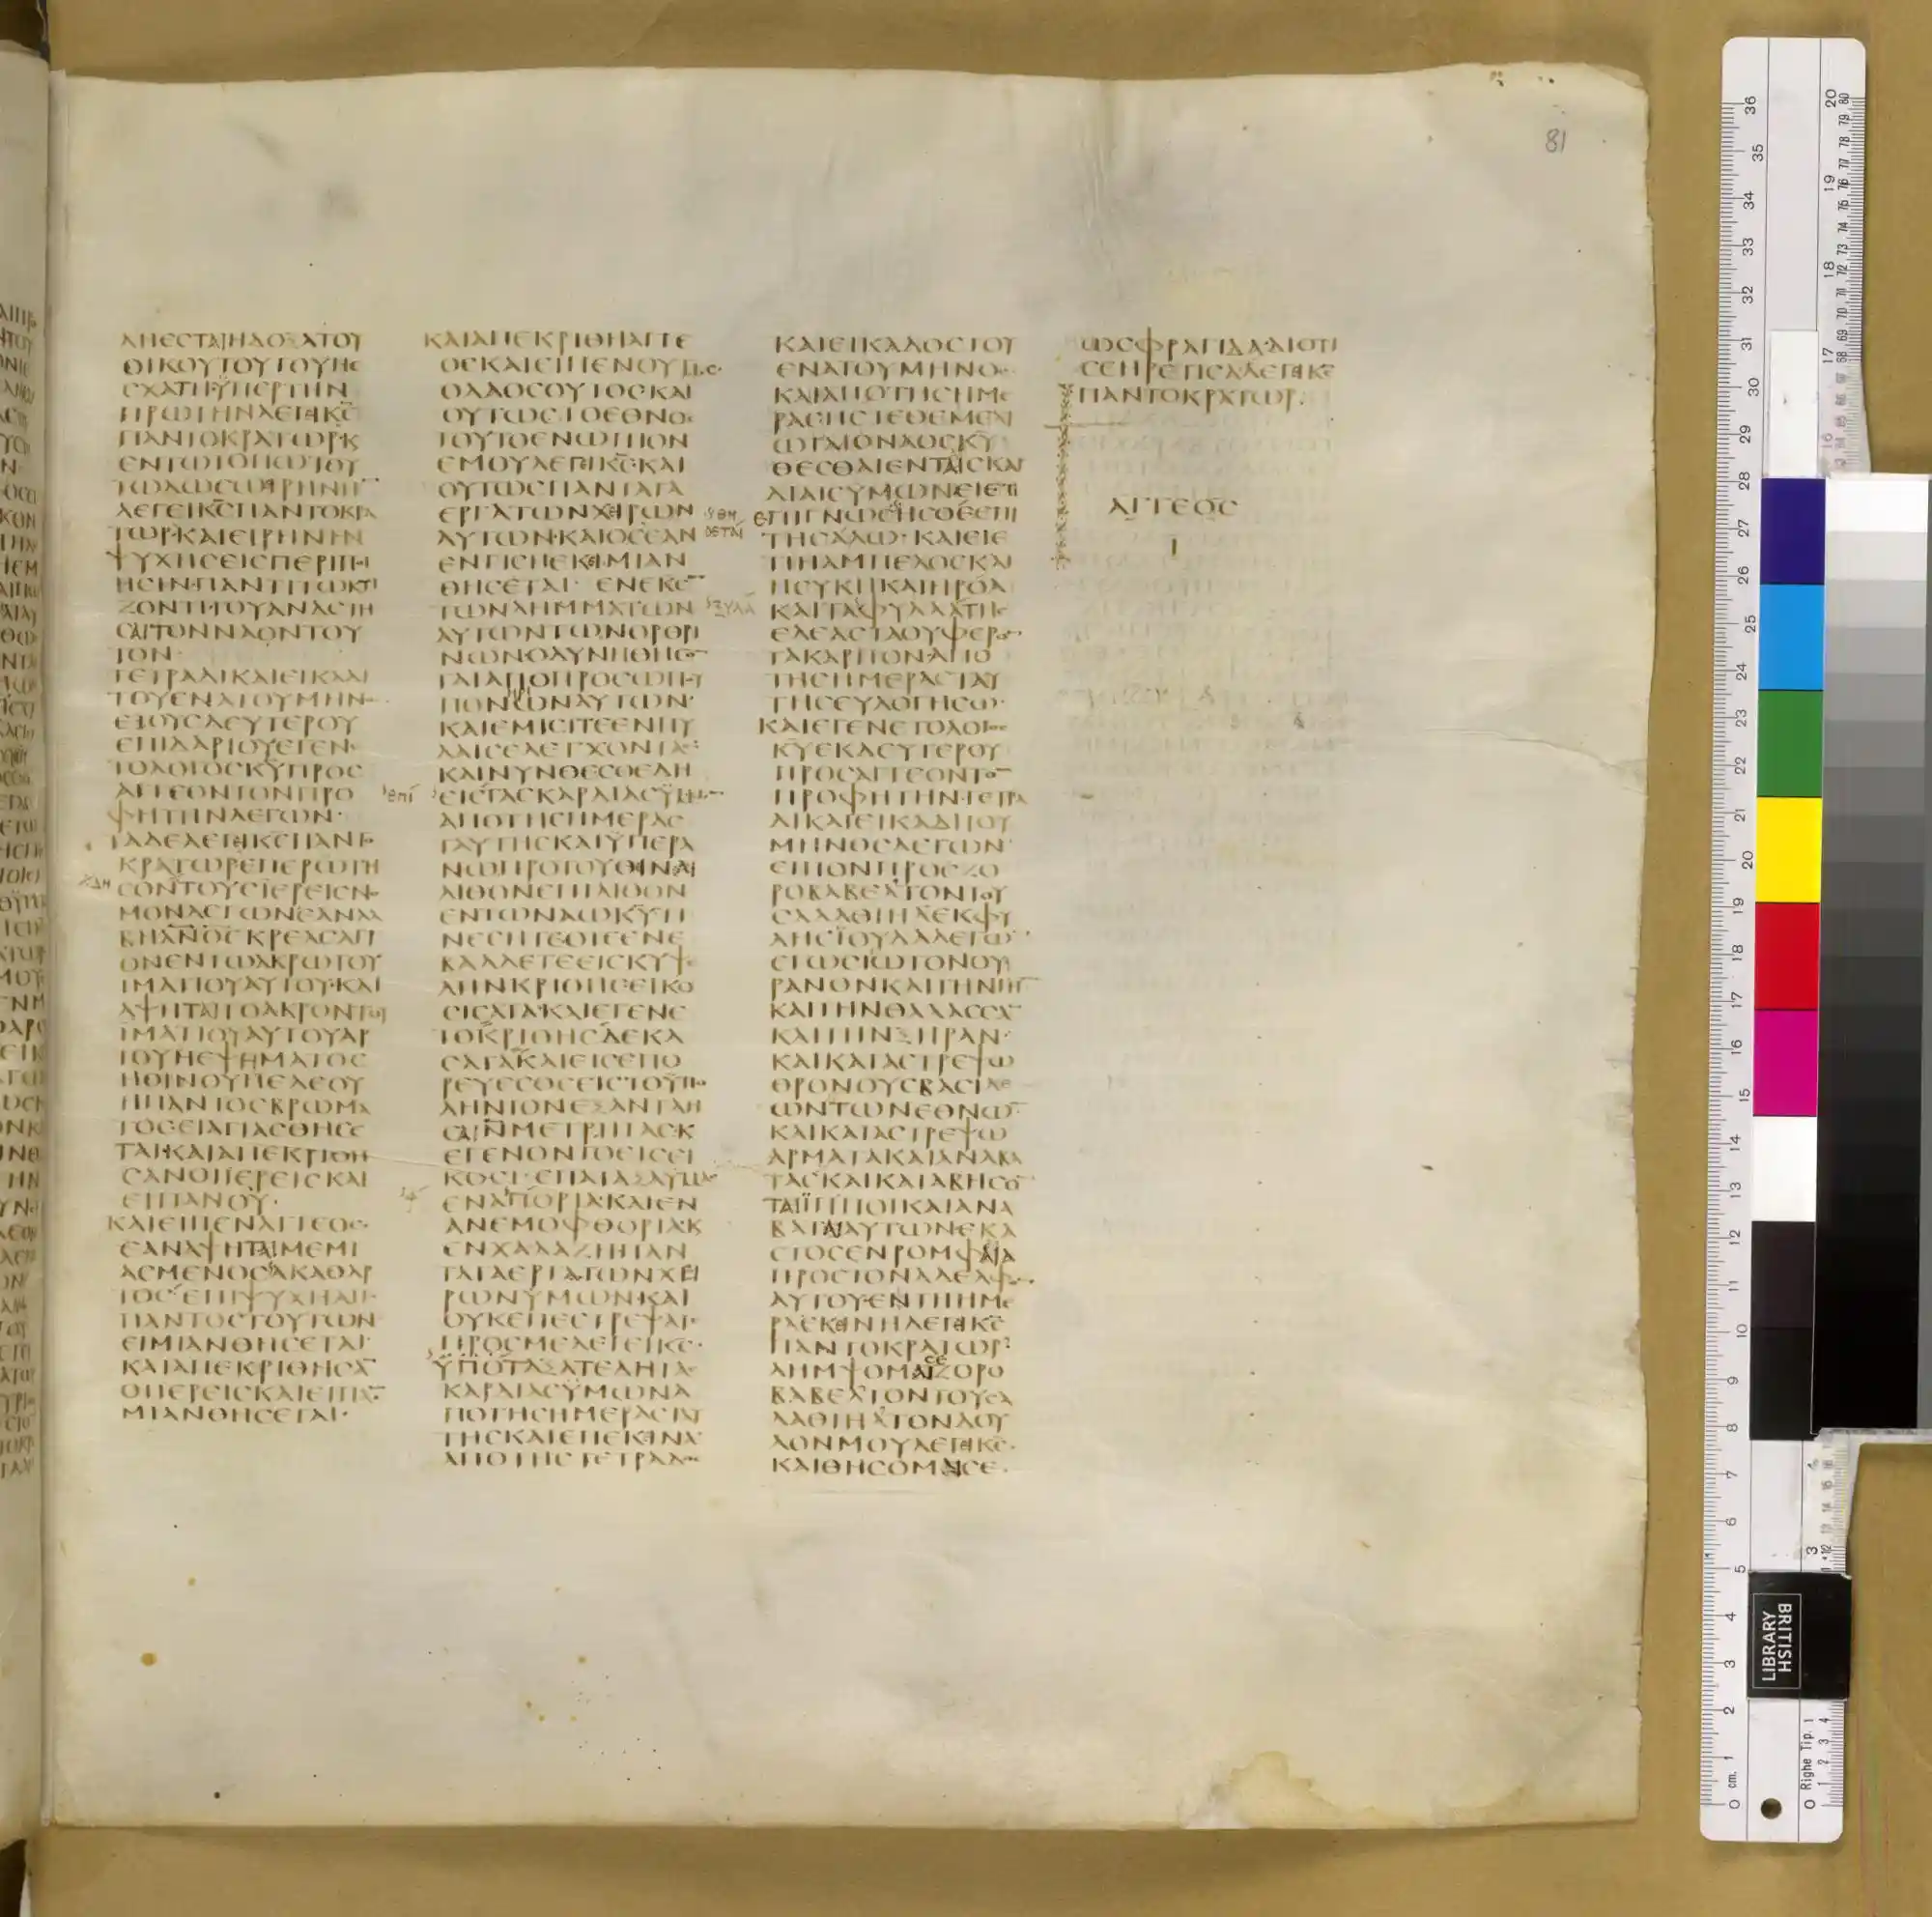 ΛΗΕCΤΑΙΗΔΟΞΑΤΟΥ
ΟΙΚΟΥΤΟΥΤΟΥΗΕ
CΧΑΤΗΫΠΕΡΤΗΝ
ΠΡΩΤΗΝΛΕΓΕΙΚ̅C̅
ΠΑΝΤΟΚΡΑΤΩΡΚ
ΕΝΤΩΤΟΠΩΤΟΥ
ΤΩΔΩCΩΕΙΡΗΝΗ̅
ΛΕΓΕΙΚ̅C̅ΠΑΝΤΟΚΡΑ
ΤΩΡ·ΚΑΙΕΙΡΗΝΗΝ
ΨΥΧΗCΕΙCΠΕΡΙΠΟΙ
ΗCΙΝΠΑΝΤΙΤΩΚΤΙ
ΖΟΝΤΙΤΟΥΑΝΑCΤΗ
CΑΙΤΟΝΝΑΟΝΤΟΥ
ΤΟΝ
ΤΕΤΡΑΔΙΚΑΙΕΙΚΑΔΙ
ΤΟΥΕΝΑΤΟΥΜΗΝΟC
ΕΤΟΥCΔΕΥΤΕΡΟΥ
ΕΠΙΔΑΡΙΟΥΕΓΕΝΕ
ΤΟΛΟΓΟCΚ̅Υ̅ΠΡΟC
ΑΓΓΕΟΝΤΟΝΠΡΟ
ΦΗΤΗΝΛΕΓΩΝ·
ΤΑΔΕΛΕΓΕΙΚ̅C̅ΠΑΝΤΟ
ΚΡΑΤΩΡΕΠΕΡΩΤΗ
CΟΝΤΟΥCΪΕΡΕΙCΝΟ
ΜΟΝΛΕΓΩΝΕΑΝΛΑ
ΒΗΑΝΟCΚΡΕΑCΑΓΙ
ΟΝΕΝΤΩΑΚΡΩΤΟΥ
ΪΜΑΤΙΟΥΑΥΤΟΥΚΑΙ
ΑΨΗΤΑΙΤΟΑΚΡΟΝΤΟΥ
ΪΜΑΤΙΟΥΑΥΤΟΥΑΡ
ΤΟΥΗΕΨΕΜΑΤΟC
ΗΟΙΝΟΥΗΕΛΕΟΥ
ΗΠΑΝΤΟCΒΡΩΜΑ
ΤΟCΕΙΑΓΙΑCΘΗCΕ
ΤΑΙ·ΚΑΙΑΠΕΚΡΙΘΗ
CΑΝΟΙΪΕΡΕΙCΚΑΙ
ΕΙΠΑΝΟΥ·
ΚΑΙΕΙΠΕΝΑΓΓΕΟC
ΕΑΝΑΨΗΤΑΙΜΕΜΙ
ΑCΜΕΝΟCΑΚΑΘΑΡ
ΤΟCΕΠΙΨΥΧΗΑΠΟ
ΠΑΝΤΟCΤΟΥΤΩΝ
ΕΙΜΙΑΝΘΗCΕΤΑΙ
ΚΑΙΑΠΕΚΡΙΘΗCΑ̅
ΟΙΪΕΡΕΙCΚΑΙΕΙΠΑ̅
ΜΙΑΝΘΗCΕΤΑΙ·
ΚΑΙΑΠΕΚΡΙΘΗΑΓΓΕ
ΟCΚΑΙΕΙΠΕΝΟΥΤΩC
ΟΛΑΟCΟΥΤΟCΚΑΙ
ΟΥΤΩCΤΟΕΘΝΟC
ΤΟΥΤΟΕΝΩΠΙΟΝ
ΕΜΟΥΛΕΓΕΙΚ̅C̅ΚΑΙ
ΟΥΤΩCΠΑΝΤΑΤΑ
ΕΡΓΑΤΩΝΧΕΙΡΩΝ
ΑΥΤΩΝ·ΚΑΙΟCΕΑΝ
ΕΝΓΙCΗΕΚΕΙΜΙΑΝ
ΘΗCΕΤΑΙ· ΕΝΕΚΕ̅
ΤΩΝΛΗΜΜΑΤΩΝ
ΑΥΤΩΝΤΩΝΟΡΘΡΙ
ΝΩΝΟΔΥΝΗΘΗCΟ̅
ΤΑΙΑΠΟΠΡΟCΩΠΟΥ
ΠΟΝΩΝΑΥΤΩΝ·
ΚΑΙΕΜΙCΙΤΕΕΝΠΥ
ΛΑΙCΕΛΕΓΧΟΝΤΑC
ΚΑΙΝΥΝΘΕCΘΕΔΗ
επι
ΕΙCΤΑCΚΑΡΔΙΑCΫΜΩ̅
ΑΠΟΤΗCΗΜΕΡΑC
ΤΑΥΤΗCΚΑΙΫΠΕΡΑ
ΝΩΠΡΟΤΟΥΘΕΙΝΑΙ
ΛΙΘΟΝΕΠΙΛΙΘΟΝ
ΕΝΤΩΝΑΩΚ̅Υ̅ΤΙ
ΝΕCΗΤΕΟΤΕΕΝΕ
ΒΑΛΛΕΤΕΕΙCΚΥΨΕ
ΛΗΝΚΡΙΘΗCΕΙΚΟ
CΙCΑΤΑΚΑΙΕΓΕΝΕ
ΤΟΚΡΙΘΗCΔΕΚΑ
CΑΤΑΚΑΙΕΙCΕΠΟ
ΡΕΥΕCΘΕΕΙCΤΟΫΠΟ
ΛΗΝΙΟΝΕΞΑΝΤΛΗ
CΑΙΜΕΤΡΗΤΑCΚ
ΕΓΕΝΟΝΤΟΕΙCΕΙ
ΚΟCΙ·ΕΠΑΤΑΞΑΫΜΑC
ΕΝΑΠΟΡΙΑ·ΚΑΙΕΝ
ΑΝΕΜΟΦΘΟΡΙΑΚ
ΕΝΧΑΛΑΖΗΠΑΝ
ΤΑΤΑΕΡΓΑΤΩΝΧΕΙ
ΡΩΝΥΜΩΝΚΑΙ
ΟΥΚΕΠΕCΤΡΕΨΑΤΕ
ΠΡΟCΜΕΛΕΓΕΙΚ̅C̅·
ΫΠΟΤΑΞΑΤΕΔΗΤΑC
ΚΑΡΔΙΑCΫΜΩΝΑ
ΠΟΤΗCΗΜΕΡΑCΤΑΥ
ΤΗCΚΑΙΕΠΕΚΕΙΝΑ
ΑΠΟΤΗCΤΕΤΡΑΔΟC
ΚΑΙΕΙΚΑΔΟCΤΟΥ
ΕΝΑΤΟΥΜΗΝΟC
ΚΑΙΑΠΟΤΗCΗΜΕ
ΡΑCΗCΤΕΘΕΜΕΛΙ
ΩΤΑΙΟΝΑΟCΚ̅Υ̅
ΘΕCΘΑΙΕΝΤΑΙCΚΑΡ
ΔΙΑΙCΥΜΩΝΕΙΕΤΙ
ΕΠΙΓΝΩCΘΗCΕΤΑΙΕΠΙ
ΤΗCΑΛΩ·ΚΑΙΕΙΕ
ΤΙΗΑΜΠΕΛΟCΚΑΙ
ΗCΥΚΗΚΑΙΗΡΟΑ
ΚΑΙΤΑΞΥΛΑΤΗC
ΕΛΕΑCΤΑΟΥΦΕΡΟ̅
ΤΑΚΑΡΠΟΝΑΠΟ
ΤΗCΗΜΕΡΑCΤΑΥ
ΤΗCΕΥΛΟΓΗCΩ·
ΚΑΙΕΓΕΝΕΤΟΛΟΓΟC
Κ̅Υ̅ΕΚΔΕΥΤΕΡΟΥ
ΠΡΟCΑΓΓΕΟΝΤΟ̅
ΠΡΟΦΗΤΗΝ·ΤΕΤΡΑ
ΔΙΚΑΙΕΙΚΑΔΙΤΟΥ
ΜΗΝΟCΛΕΓΩΝ·
ΕΙΠΟΝΠΡΟCΖΟ
ΡΟΒΑΒΕΛΤΟΝΤΟΥ
CΑΛΑΘΙΗΛΕΚΦΥ
ΛΗCΪΟΥΔΑΛΕΓΩ̅
CΙΩCΕΙΩΤΟΝΟΥ
ΡΑΝΟΝΚΑΙΤΗΝΓΗ̅
ΚΑΙΤΗΝΘΑΛΑCCΑ̅
ΚΑΙΤΗΝΞΗΡΑΝ·
ΚΑΙΚΑΤΑCΤΡΕΨΩ
ΘΡΟΝΟΥCΒΑCΙΛΕ
ΩΝΤΩΝΕΘΝΩ̅
ΚΑΙΚΑΤΑCΤΡΕΨΩ
ΑΡΜΑΤΑΚΑΙΑΝΑΒΑ
ΤΑCΚΑΙΚΑΤΑΒΗCΟ̅
ΤΑΙΪΠΠΟΙΚΑΙΑΝΑ
ΒΑΤΑΙΑΥΤΩΝΕΚΑ
CΤΟCΕΝΡΟΜΦΑΙΑ
ΠΡΟCΤΟΝΑΔΕΛΦΟ̅
ΑΥΤΟΥ·ΕΝΤΗΗΜΕ
ΡΑΕΚΕΙΝΗΛΕΓΕΙΚ̅C̅
ΠΑΝΤΟΚΡΑΤΩΡ
ΛΗΜΨΟΜΑΙCΕΖΟΡΟ
ΒΑΒΕΛΤΟΝΤΟΥCΑ
ΛΑΘΙΗΛΤΟΝΔΟΥ
ΛΟΝΜΟΥΛΕΓΕΙΚ̅C̅·
ΚΑΙΘΗCΟΜΑΙCΕ·
ΩCCΦΡΑΓΙΔΑΔΙΟΤΙ
CΕΗΡΕΤΙCΑΛΕΓΕΙΚ̅C̅
ΠΑΝΤΟΚΡΑΤΩΡ·
ΑΓΓΕΟC
Ι
81